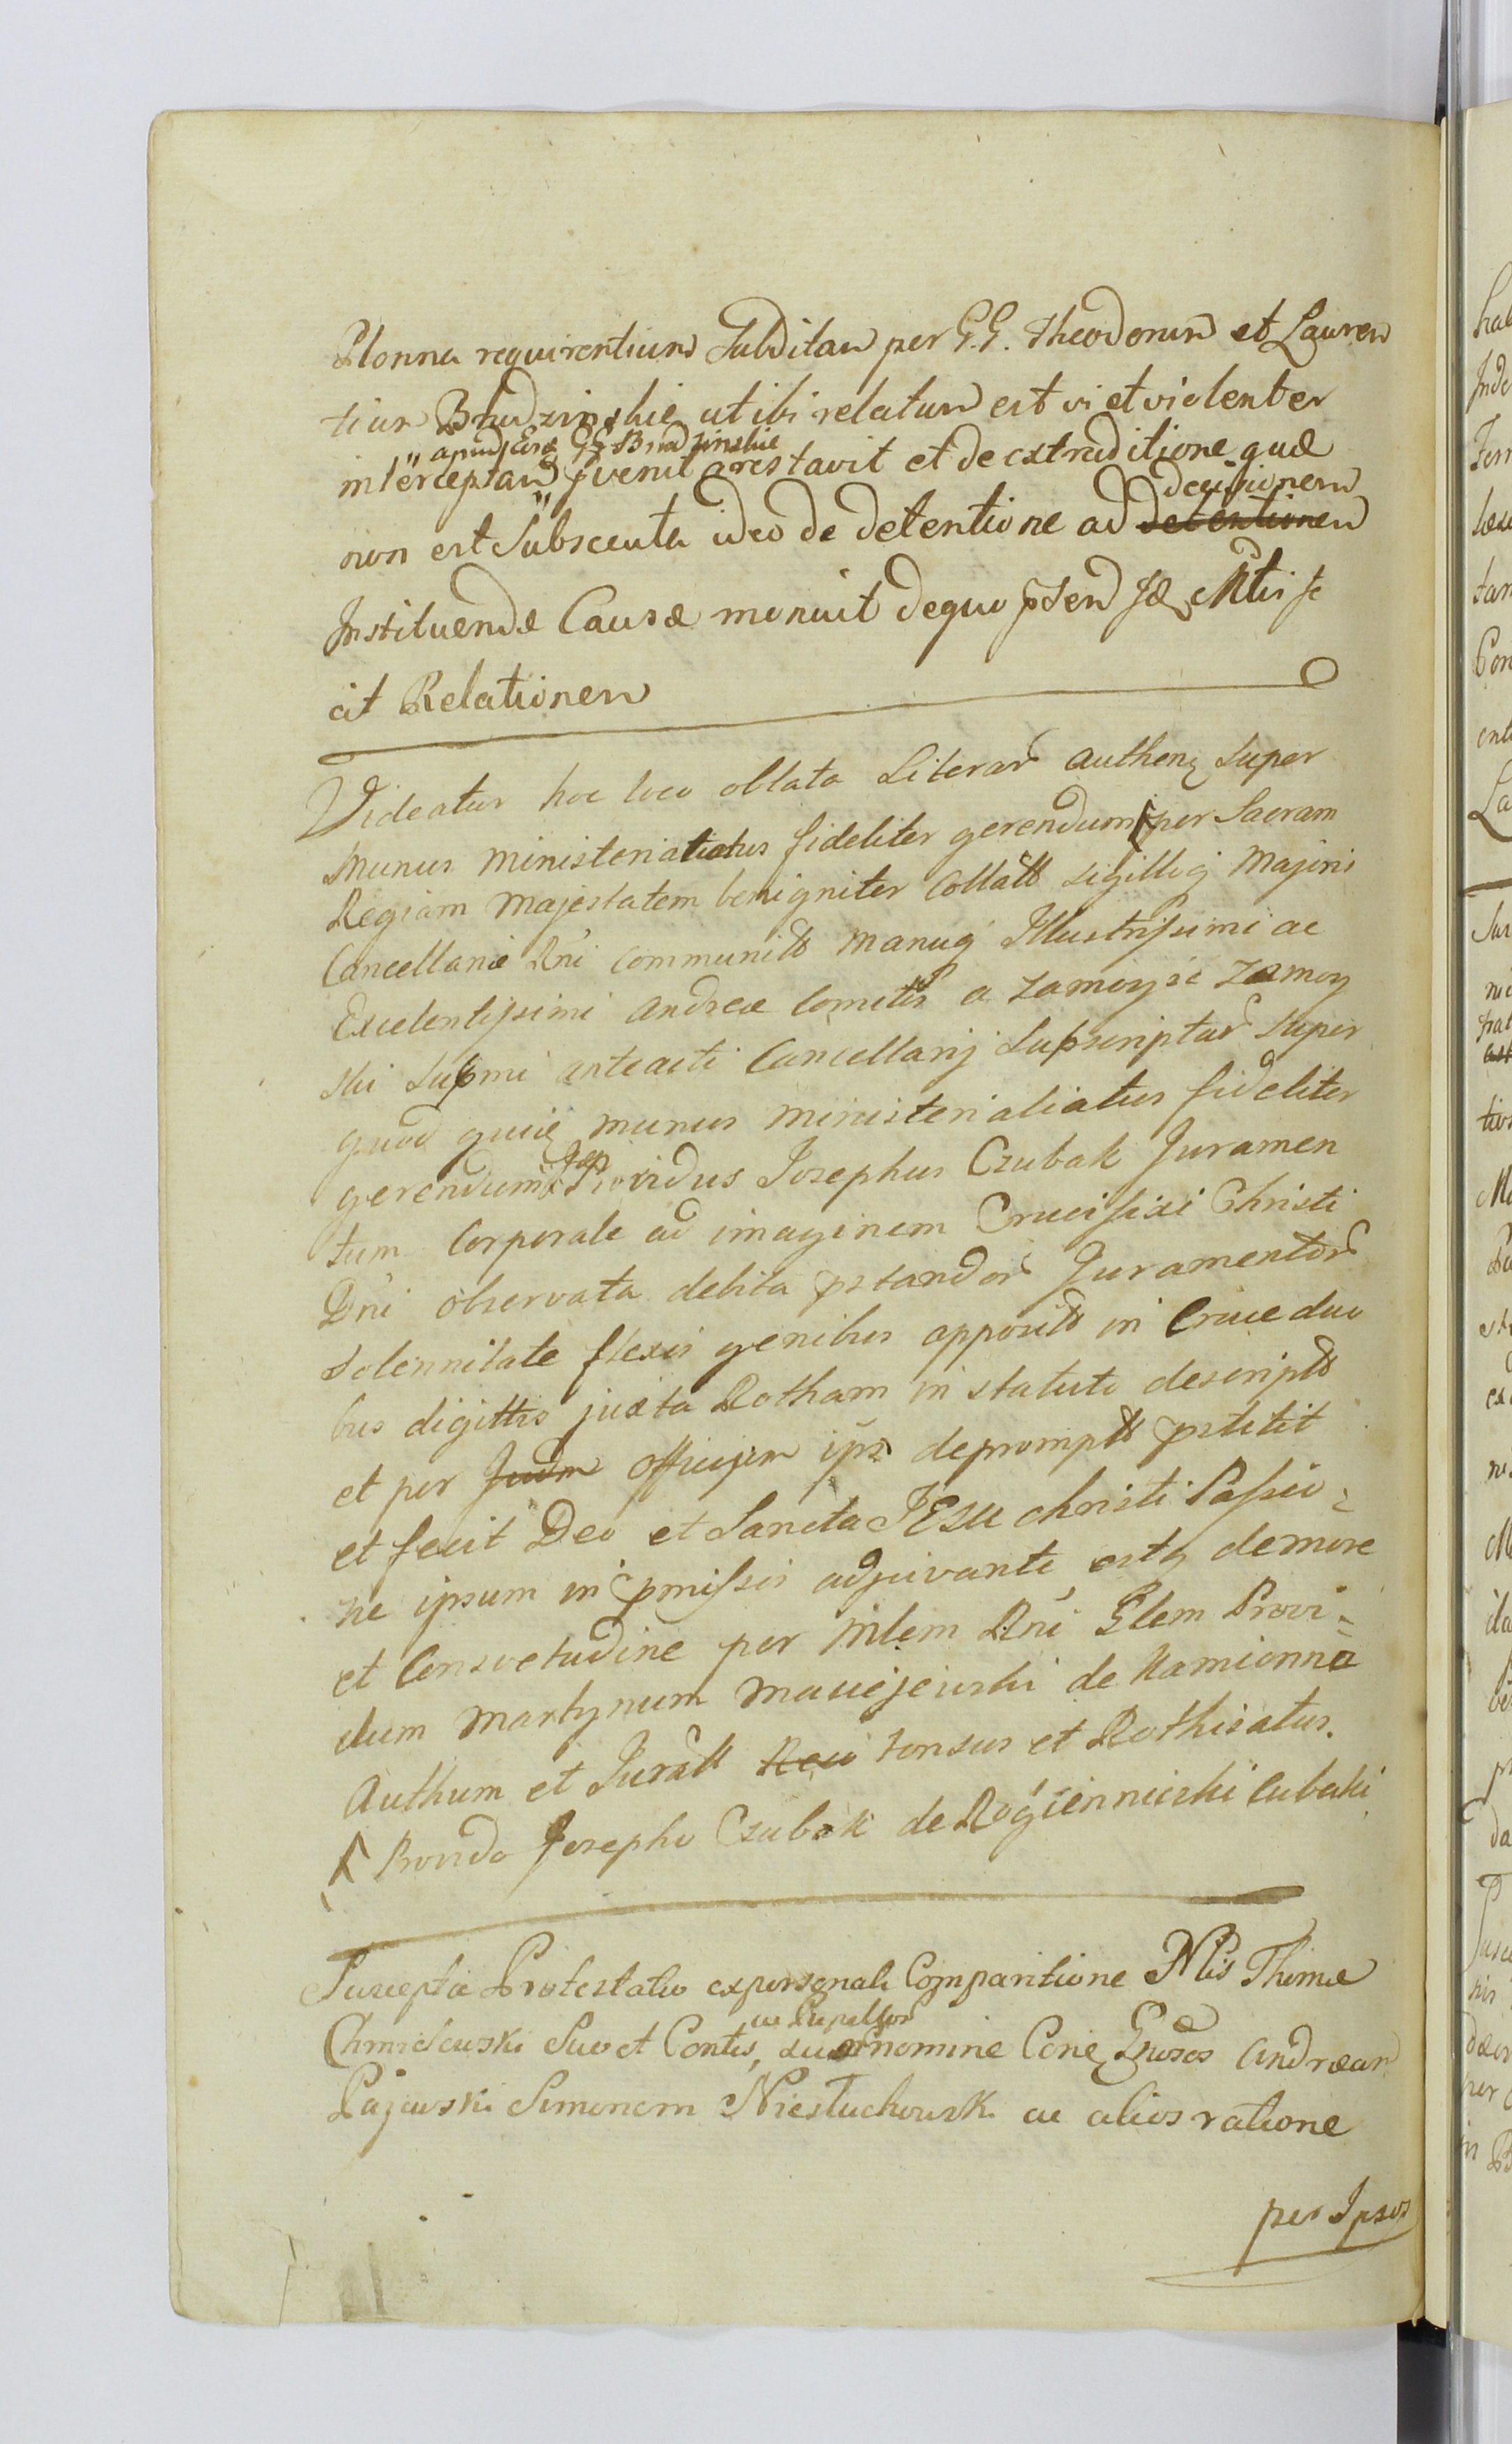 Plonna requirentium Subditam per G.G. Theodorum et Lauren
tium Brudzinskie ut ibi relatum est vi et violenter
" apud eosd GG Brudzinskie
interceptam " invenit arestavit et de extraditione quæ
decisionem
non est Subsecuta ideo de detentione ad detentionem
Instituendæ Causæ monuit dequo pdsem Mtis fe
cit Relationem
Videatur hoc loco oblata Literar authen super
Munus ministerialiatus fideliter gerendum per Sacram
Regiam Majestatem benigniter Collatt sigilloq Majoris
Cancellariæ Rni communitt manuq Illustrissimi ac
Excelentissimi Andreæ Comitis a Zamoyscie Zamoy
ski Supmi anteacti Cancellarij Subscriptar super
quod quie munus ministerialiatus fideliter
gerendum Providus Josephus Czubak Juramen
tum Corporale ad imaginem Crucifixi Christi
Dni observata debita pstandor Juramentor
Solennitate flexis genibus appositt in Cruce duo
bus digittis juxta Rotham in statuto descriptt
et per Judm Officium ips depromptt pstitit
et fecit Deo et Sancta JESU Christi Passio-
ne ipsum in pmissis adjuvante estq de more
et Consvetudine per Mlem Rni Glem Provi-
dum Martynum Maciejewski de Kamionna
Authum et Juratt Reci tonsus et Rothisatus.
Provido Josepho Czubak de Rogienniczki Cubaki
Suscepta Protestatio ex personali Comparitione Nlis Thomæ
ac Pupillor
Chmielewski Suo et Contis, suor nomine Cone Gnosos Andream
Pajewski Simonem Niestuchowsk ac alios ratione
per Ipsos